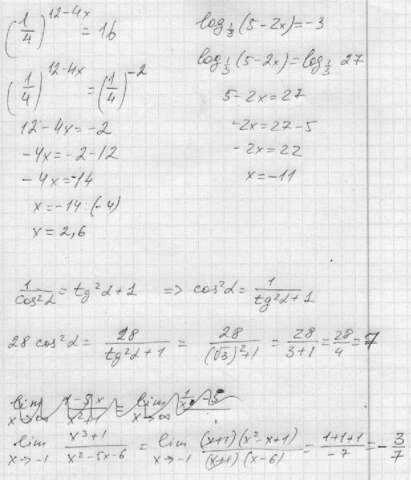 (1/4)^(12-4x) = 16
(1/4)^(12-4x) = (1/4)^(-2)
12-4x=-2
-4x=-2-12
-4x=-14
x=-14:(-4)
x=2,6
log_(1/3)(5-2x)=-3
log_(1/3)(5-2x)=log_(1/3) 27
5-2x=27
-2x=27-5
-2x=22
x=-11
1/cos²α = tg²α+1 => cos²α = 1/(tg²α+1)
28 cos²α = 28/(tg²α+1) = 28/((√3)²+1) = 28/(3+1) = 28/4 = 7
lim x→-1 (x³+1)/(x²-5x-6) = lim x→-1 ((x+1)(x²-x+1))/((x+1)(x-6)) = (1+1+1)/(-7) = -3/7